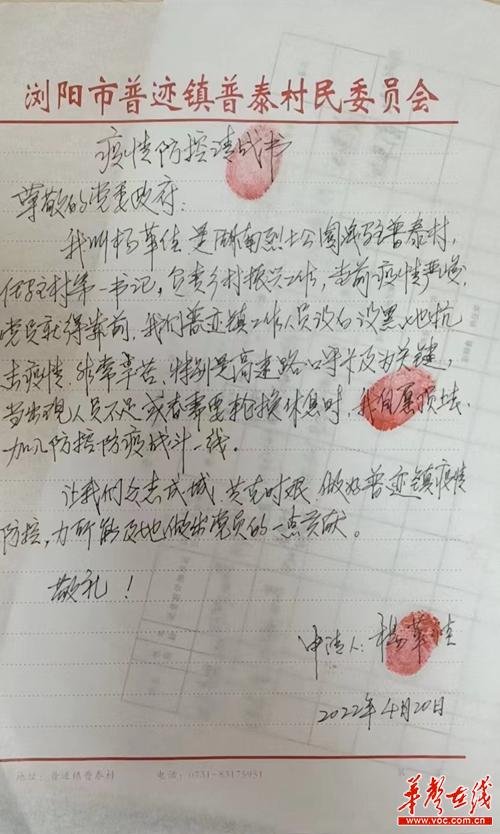 浏阳市普迹镇普泰村民委员会
疫情防控请战书
尊敬的党委政府:
我叫杨革佳 是湖南烈士公园派驻普泰村,
任驻村第一书记,负责乡村振兴工作,当前疫情严峻,
党员就得靠前,我们普迹镇工作人员没白没黑地抗
击疫情 非常辛苦,特别是高速路口
当出现人员不足或者需要轮换休息时,我自愿顶上,
加入防控防疫战斗一线。
让我们众志成城 共克时艰 做好普迹镇疫情
防控,力所能及地做出党员的一点贡献。
敬礼!
申请人: 杨革佳
2022年4月20日
地址:普迹镇普泰村 电话:0731-83175931
华声在线
www.voc.com.cn